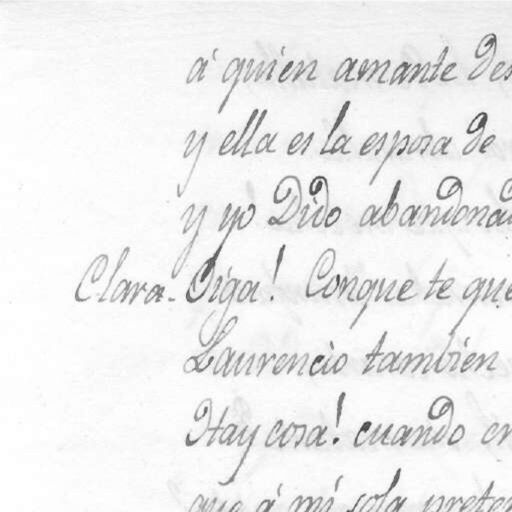 á quien amante des
y ella es la esposa de
y yo Dido abandonad
Clara- Oiga! Conque te que
Laurencio tambien
Hay cosa! cuando en
que á mí sola preten